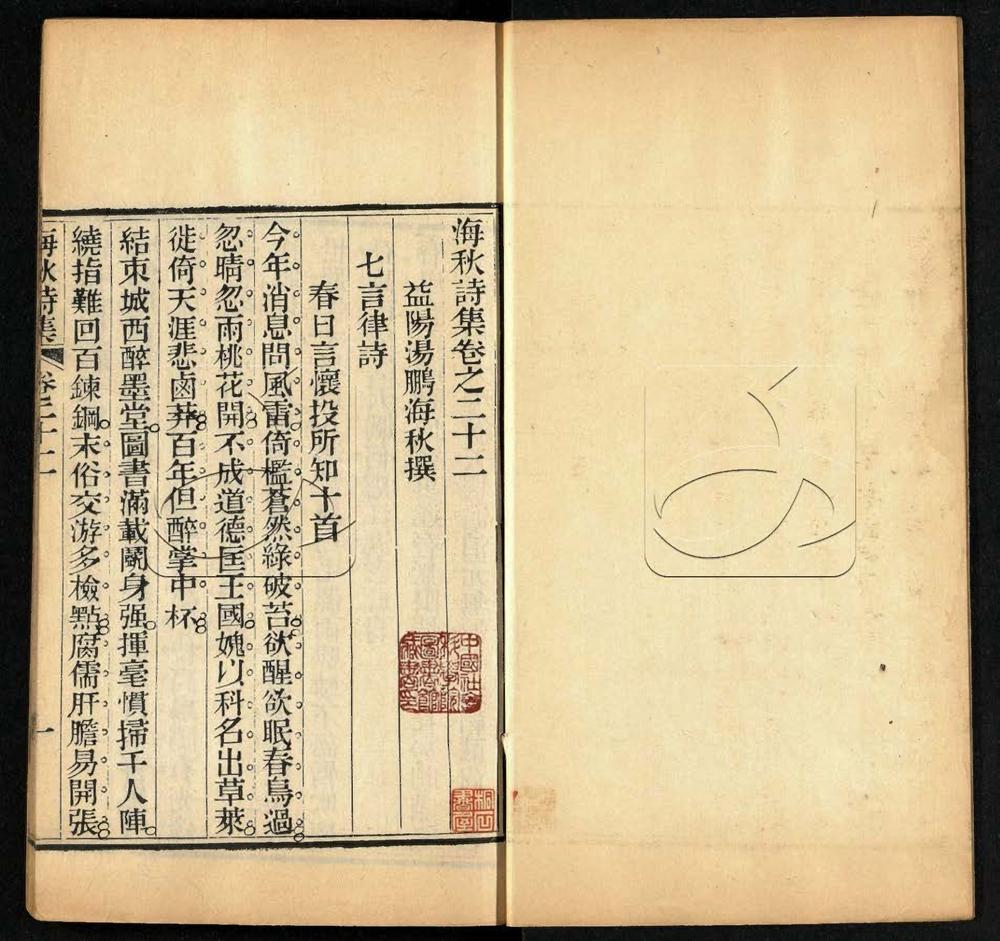 海秋詩集卷之二十二
益陽湯鵬海秋撰
七言律詩
春日言懷投所知十首
今年消息問風雷倚檻蒼然綠破苔欲醒欲眠春鳥過
忽晴忽雨桃花開不成道德匡王國媿以科名出草萊
徙倚天涯悲鹵莽百年但醉掌中杯
結束城西醉墨堂圖書滿載鬭身强揮毫慣掃千人陣
繞指難回百鍊鋼末俗交游多檢點腐儒肝膽易開張
海秋詩集 卷二十二 一